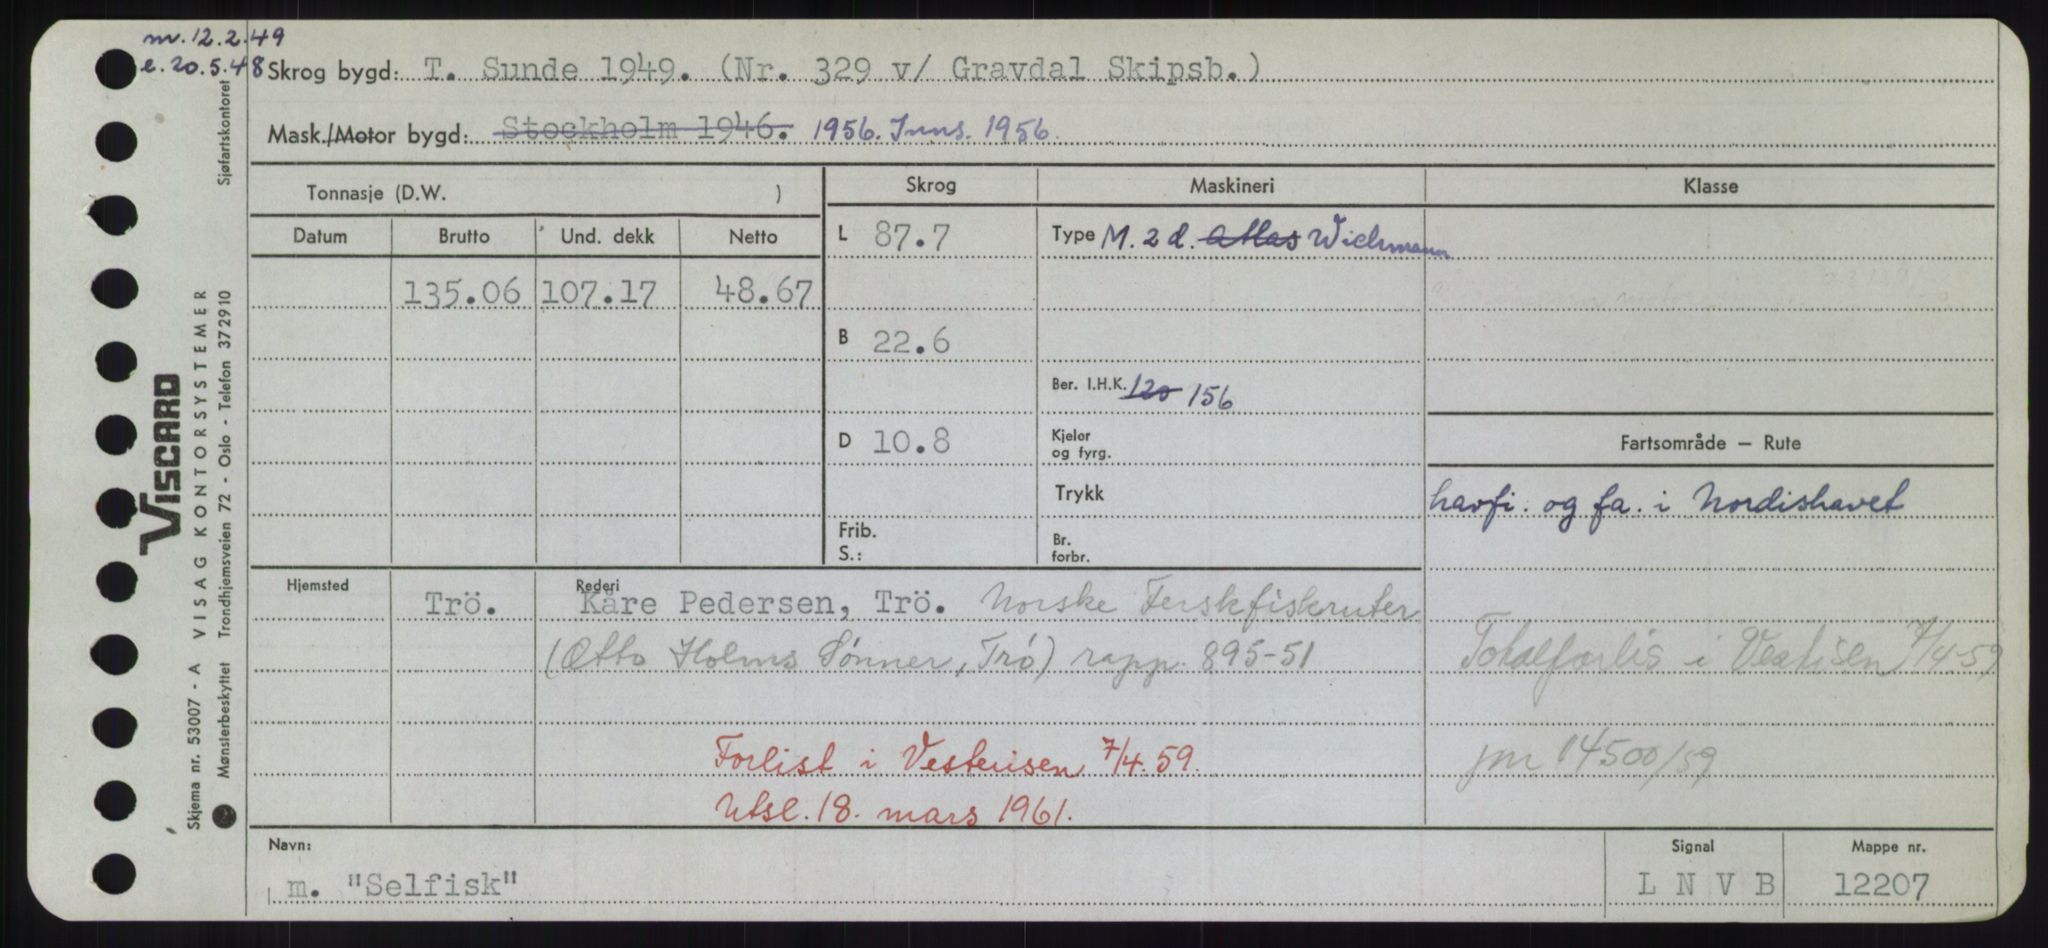 m. 12.2.49
e. 20.5.48 Skrog bygd: T. Sunde 1949. (Nr. 329 v/ Gravdal Skipsb.)
Mask./Motor bygd: Stockholm 1946. 1956. Inns. 1956.
Tonnasje (D.W. )
Skrog
Maskineri
Klasse
Datum Brutto Und. dekk Netto
135.06 107.17 48.67
L 87.7
B 22.6
D 10.8
Frib.
S.:
Type M. 2 d. Atlas Wichmann
Ber. I.H.K. 120 156
Kjeler
og fyrg.
Trykk
Br.
forbr.
Fartsområde — Rute
havfi. og fa. i Nordishavet
Hjemsted
Trö.
Rederi
Kåre Pedersen, Trö. Norske Ferskfiskruter
(Otto Holms Sønner, Trö) rapp. 895-51
Totalforlis i Vestisen 7/4-59
jnr 14500/59
Forlist i Vesterisen 7/4. 59.
Utsl. 18. mars 1961.
Navn:
m. "Selfisk"
Signal
L N V B
Mappe nr.
12207
Sjøfartskontoret
VISCARD
VISAG KONTORSYSTEMER
Trondhjemsveien 72 - Oslo - Telefon 372910
Skjema nr. 53007 - A
Mønsterbeskyttet